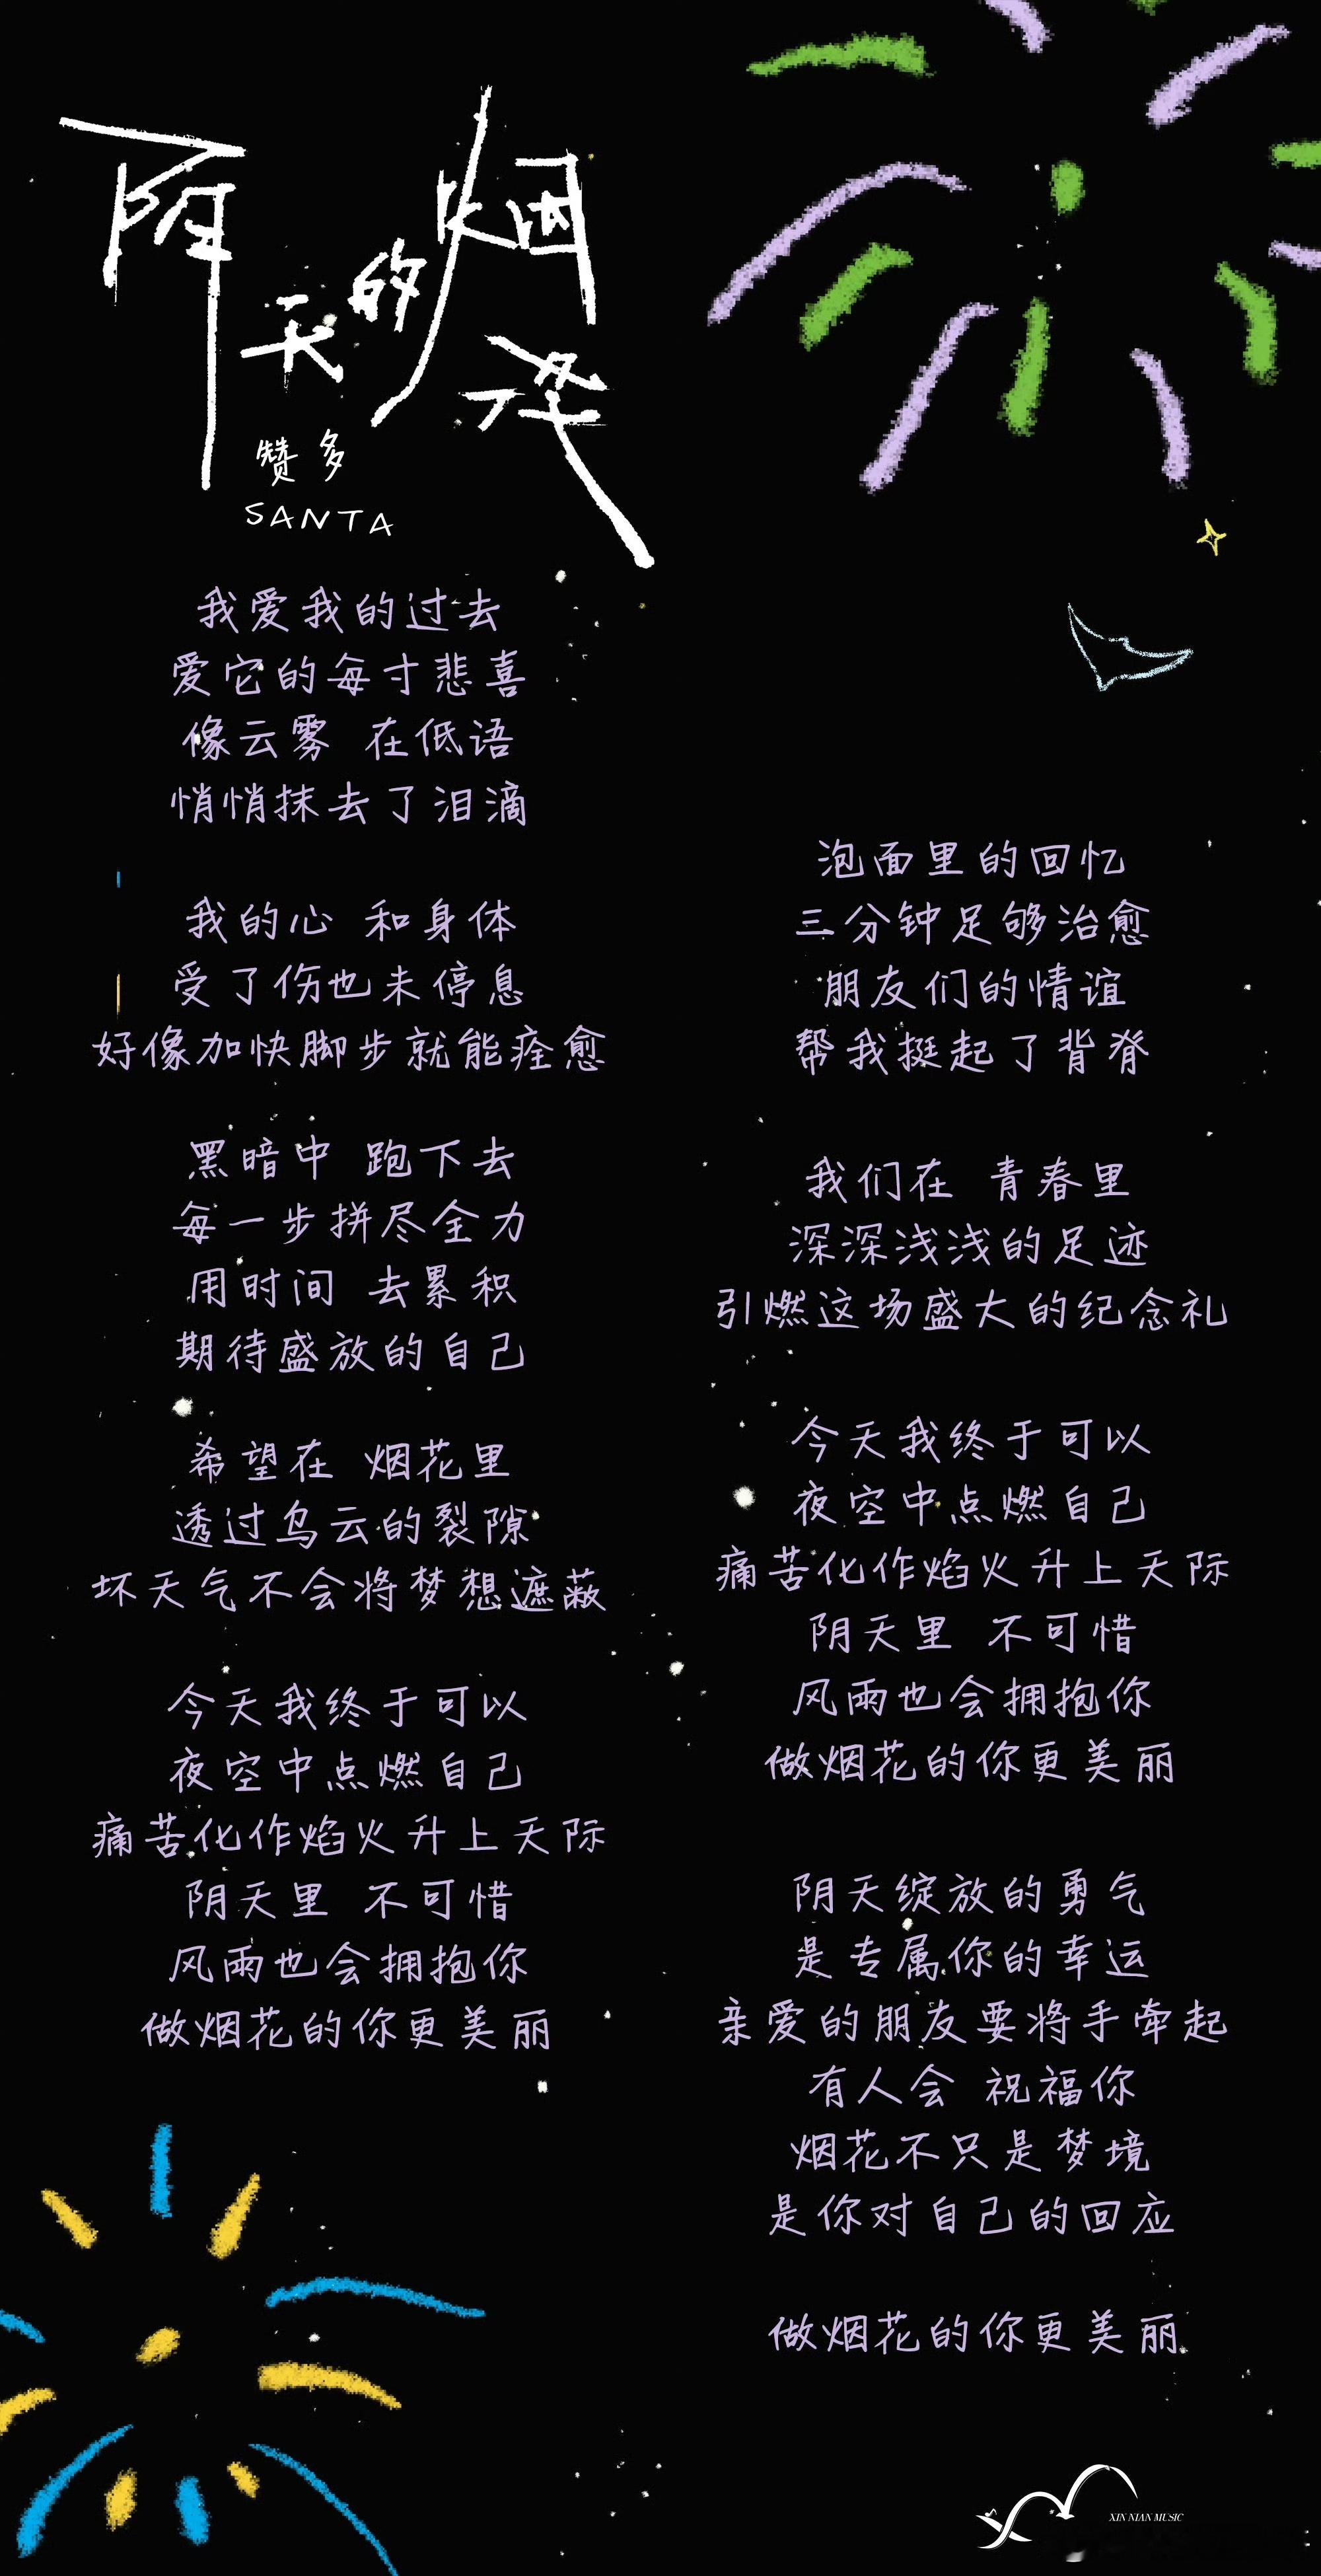 阴天的烟花
赞多
SANTA
我爱我的过去
爱它的每寸悲喜
像云雾 在低语
悄悄抹去了泪滴
我的心 和身体
受了伤也未停息
好像加快脚步就能痊愈
黑暗中 跑下去
每一步拼尽全力
用时间 去累积
期待盛放的自己
希望在 烟花里
透过乌云的裂隙
坏天气不会将梦想遮蔽
今天我终于可以
夜空中点燃自己
痛苦化作焰火升上天际
阴天里 不可惜
风雨也会拥抱你
做烟花的你更美丽
泡面里的回忆
三分钟足够治愈
朋友们的情谊
帮我挺起了背脊
我们在 青春里
深深浅浅的足迹
引燃这场盛大的纪念礼
今天我终于可以
夜空中点燃自己
痛苦化作焰火升上天际
阴天里 不可惜
风雨也会拥抱你
做烟花的你更美丽
阴天绽放的勇气
是专属你的幸运
亲爱的朋友要将手牵起
有人会 祝福你
烟花不只是梦境
是你对自己的回应
做烟花的你更美丽
XIN NIAN MUSIC